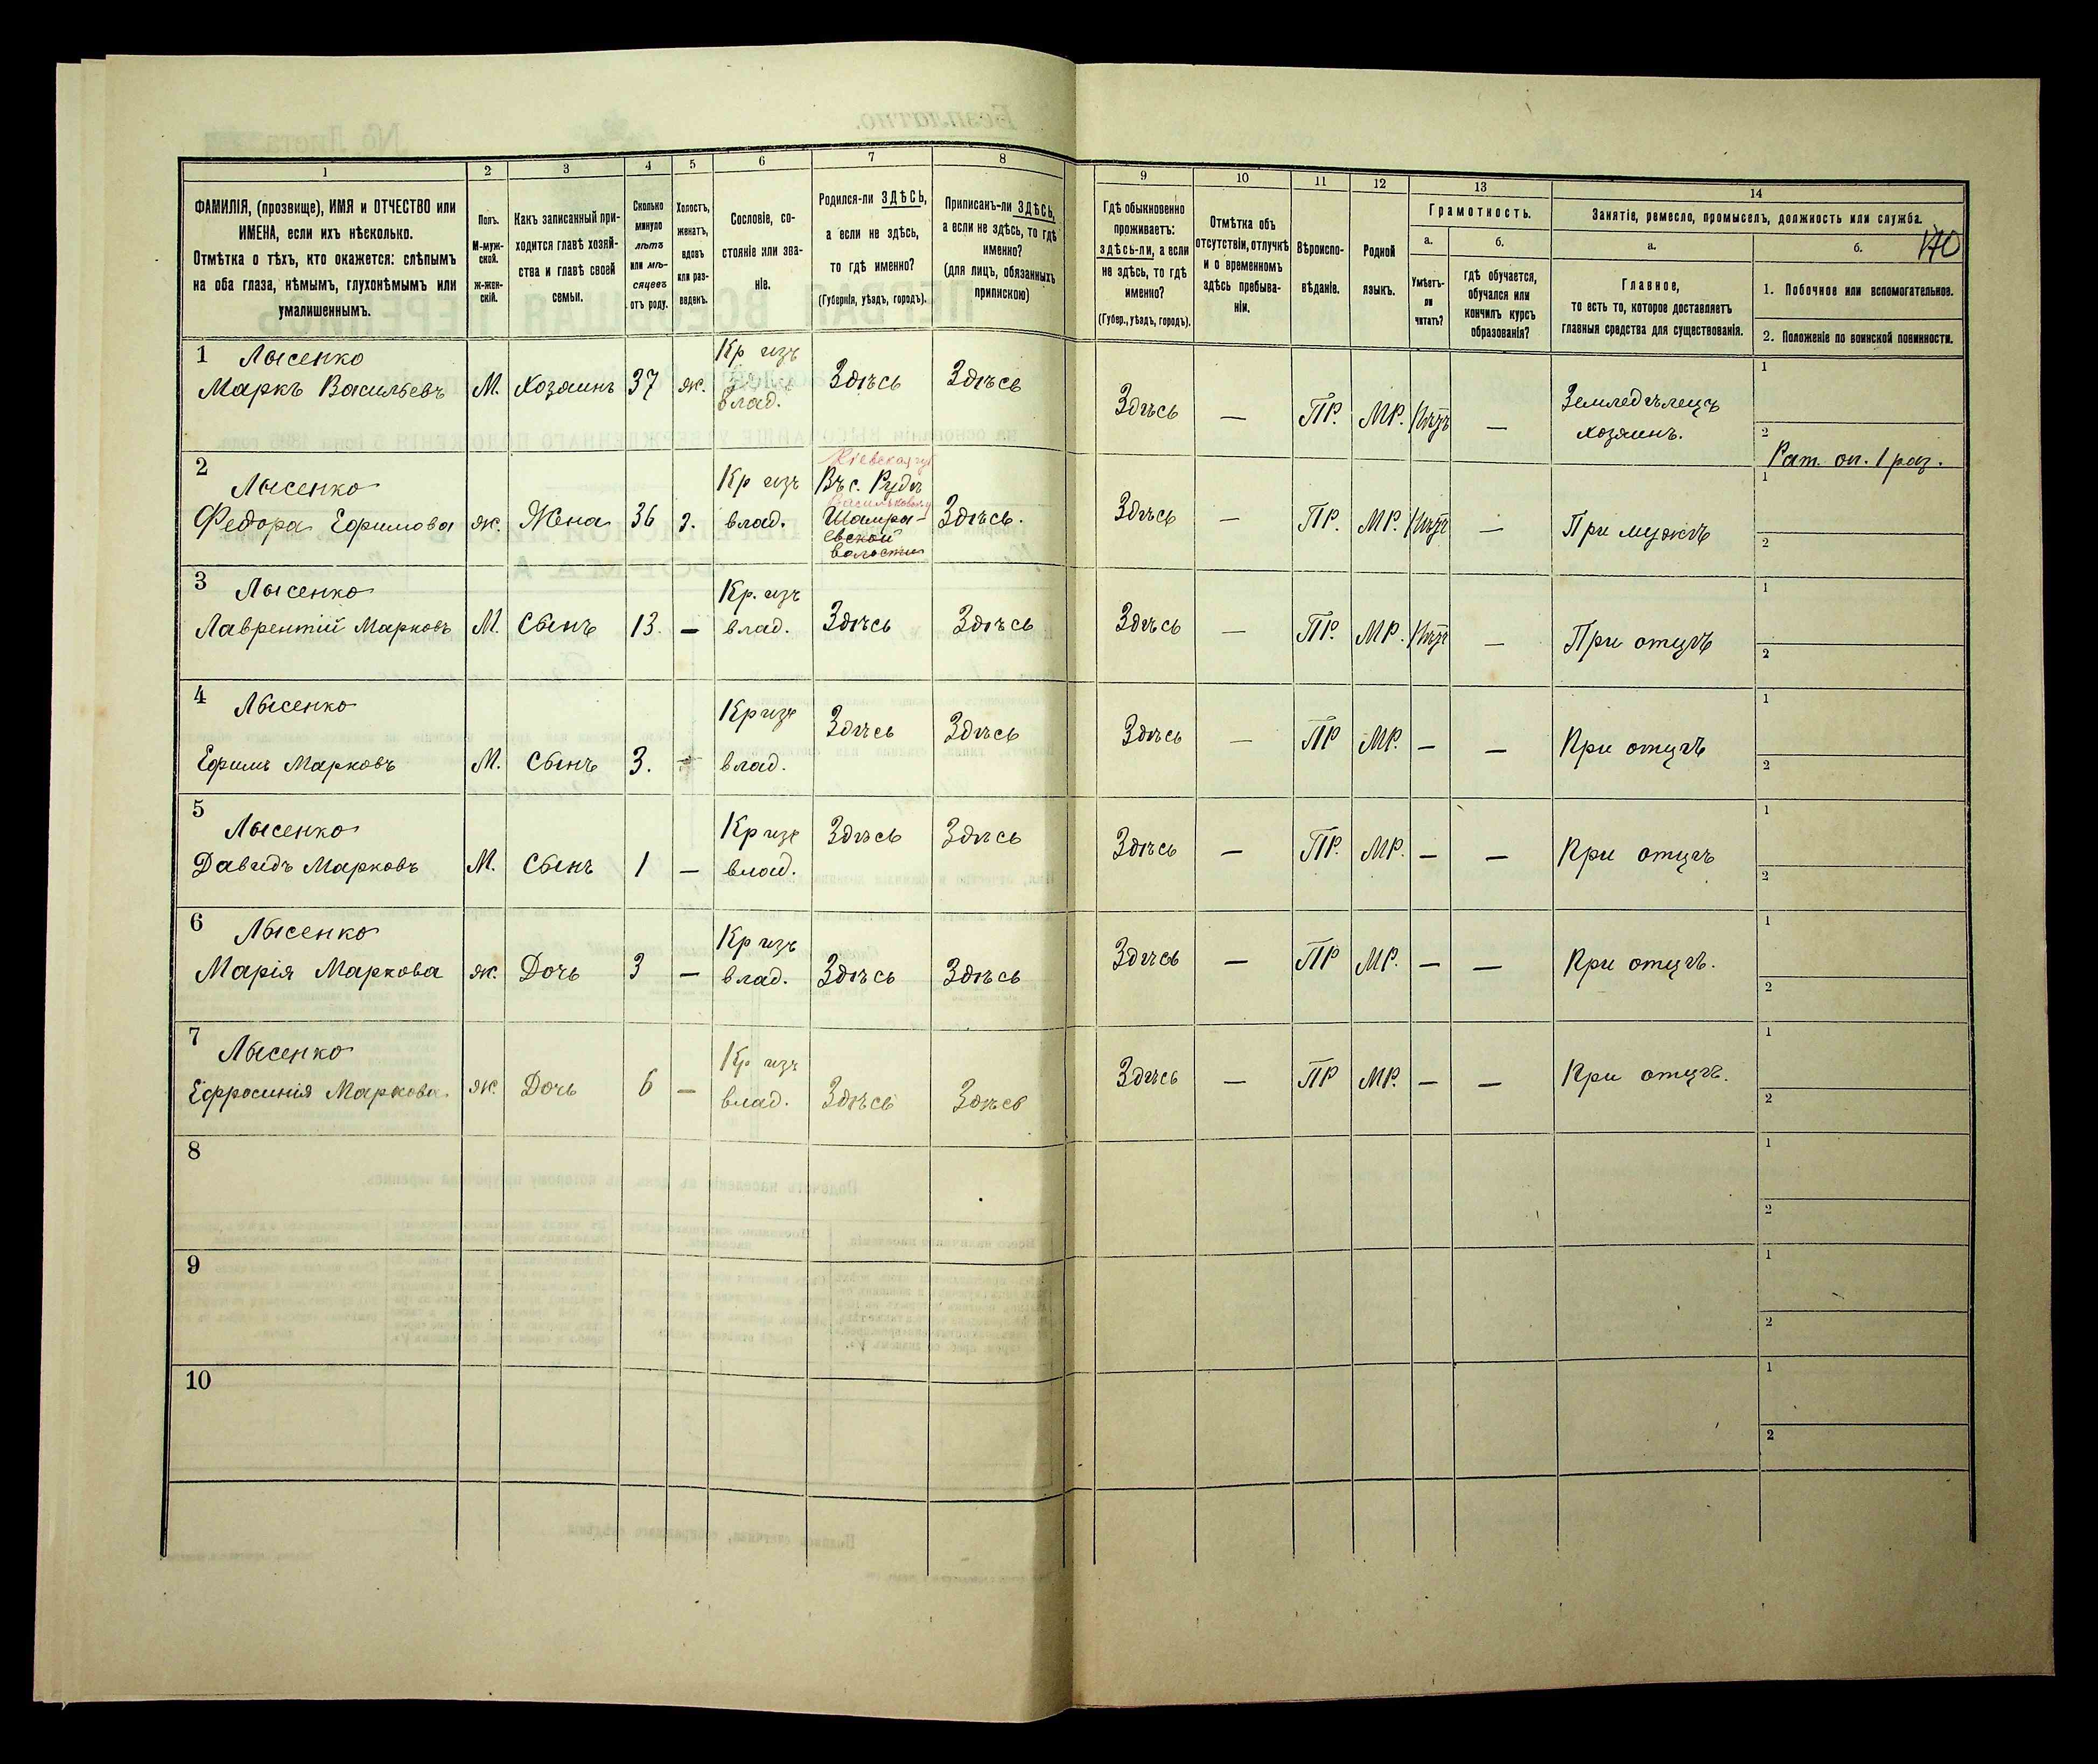 170
1
ФАМИЛІЯ, (прозвище), ИМЯ и ОТЧЕСТВО или
ИМЕНА, если ихъ нѣсколько.
Отмѣтка о тѣхъ, кто окажется: слѣпымъ
на оба глаза, нѣмымъ, глухонѣмымъ или
умалишеннымъ.
2
Полъ.
М-муж-
ской.
ж-жен-
скій.
3
Какъ записанный при-
ходится главѣ хозяй-
ства и главѣ своей
семьи.
4
Сколько
минуло
лѣтъ
или мѣ-
сяцевъ
отъ роду.
5
Холостъ,
женатъ,
вдовъ
или раз-
веденъ.
6
Сословіе, со-
стояніе или зва-
ніе.
7
Родился-ли ЗДѢСЬ,
а если не здѣсь,
то гдѣ именно?
(Губернія, уѣздъ, городъ).
8
Приписанъ-ли ЗДѢСЬ,
а если не здѣсь, то гдѣ
именно?
(для лицъ, обязанныхъ
припискою)
9
Гдѣ обыкновенно
проживаетъ:
ЗДѢСЬ-ЛИ, а если
не здѣсь, то гдѣ
именно?
(Губер., уѣздъ, городъ).
10
Отмѣтка объ
отсутствіи, отлучкѣ
и о временномъ
здѣсь пребыва-
ніи.
11
Вѣроиспо-
вѣданіе.
12
Родной
языкъ.
13
Грамотность.
а.
Умѣетъ-
ли
читать?
б.
гдѣ обучается,
обучался или
кончилъ курсъ
образованія?
14
Занятіе, ремесло, промыселъ, должность или служба.
а.
Главное,
то есть то, которое доставляетъ
главныя средства для существованія.
б.
1. Побочное или вспомогательное.
2. Положеніе по воинской повинности.
1 Лысенко
Маркъ Васильевъ
М.
Хозяинъ
37
ж.
Кр изъ
влад.
Здѣсь
Здѣсь
Здѣсь
—
ПР.
МР.
нѣтъ
—
Земледѣлецъ
хозяинъ.
1
2
Рат. оп. 1 раз.
2
Лысенко
Федора Ефимова
ж.
Жена
36
з.
Кр изъ
влад.
Кіевская губ
Въ с. Рудѣ
Васильков. у
Шамра-
евской
волости
Здѣсь.
Здѣсь
—
ПР.
МР.
нѣтъ
—
При мужѣ
1
2
3 Лысенко
Лаврентій Марковъ
М.
Сынъ
13.
—
Кр. изъ
влад.
Здѣсь
Здѣсь
Здѣсь
—
ПР.
МР.
нѣтъ
—
При отцѣ
1
2
4 Лысенко
Ефимъ Марковъ
М.
Сынъ
3.
Кр изъ
влад.
Здѣсь
Здѣсь
Здѣсь
—
ПР
МР.
—
—
При отцѣ
1
2
5
Лысенко
Давидъ Марковъ
М.
Сынъ
1
—
Кр изъ
влад.
Здѣсь
Здѣсь
Здѣсь
—
ПР.
МР.
—
—
При отцѣ
1
2
6 Лысенко
Марія Маркова
ж.
Дочь
3
—
Кр изъ
влад.
Здѣсь
Здѣсь
Здѣсь
—
ПР
МР.
—
—
При отцѣ.
1
2
7
Лысенко
Ефросинія Маркова.
ж.
Дочь
6
—
Кр изъ
влад.
Здѣсь
Здѣсь
Здѣсь
—
ПР
МР.
—
—
При отцѣ.
1
2
8
1
2
9
1
2
10
1
2